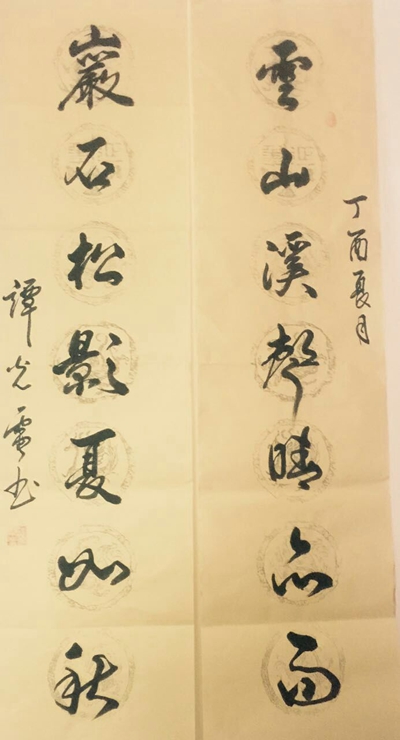 丁酉夏月
雲山溪聲晴亦雨
巖石松影夏如秋
譚光书